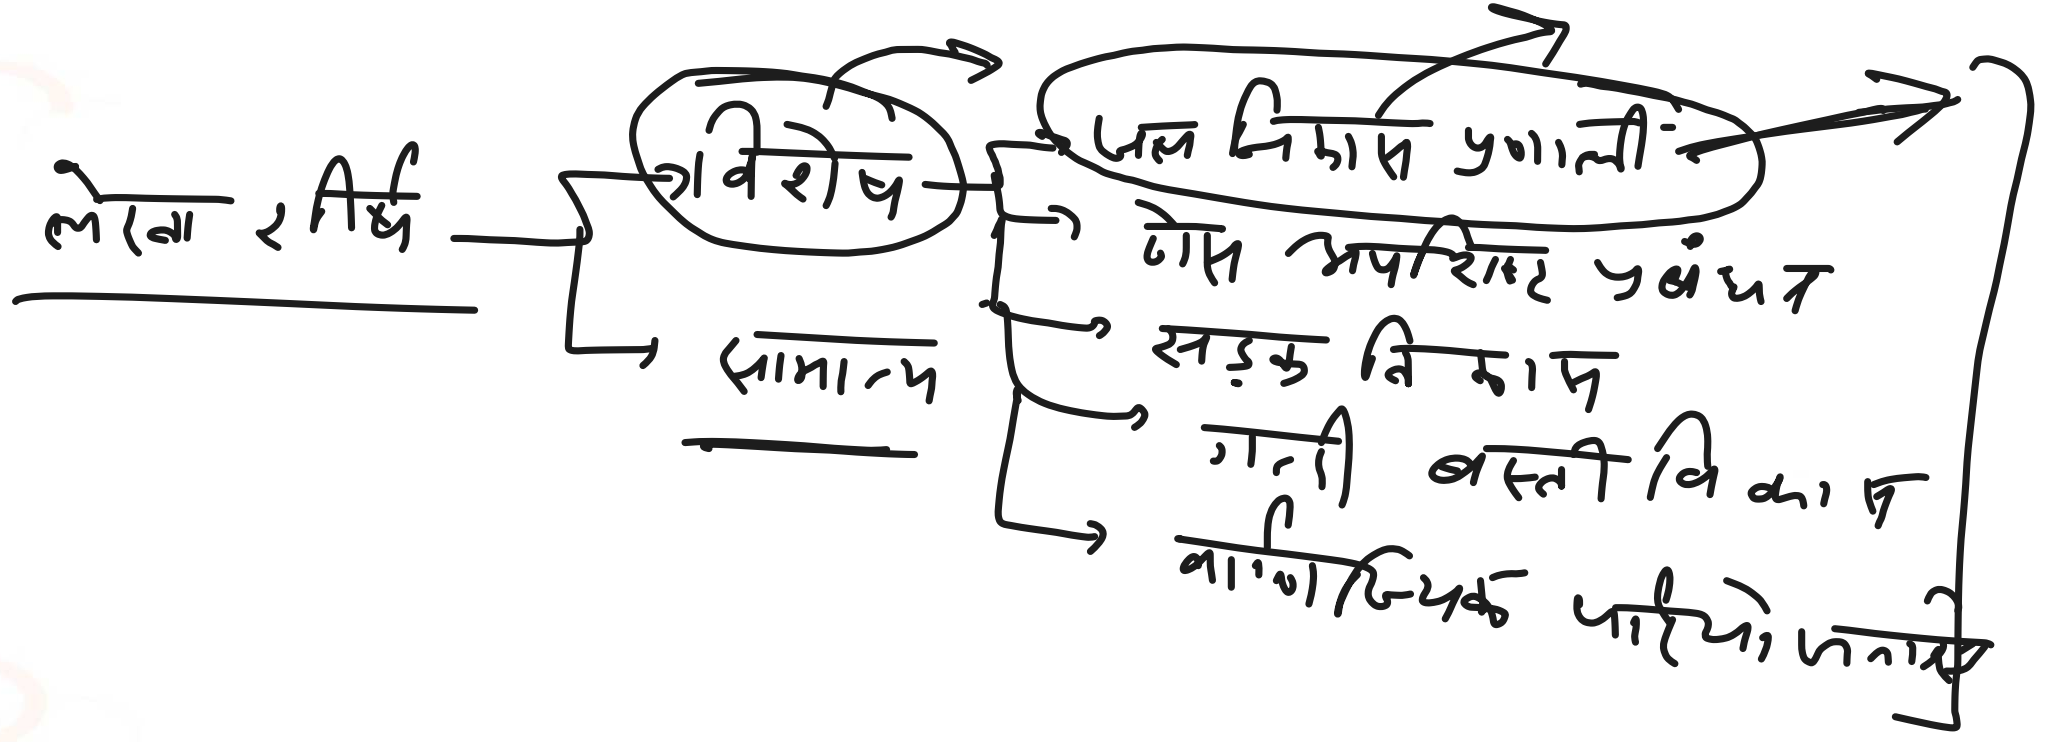 लेखा शीर्ष
विशेष
सामान्य
जल निकास प्रणाली
ठोस अपशिष्ट प्रबंधन
सड़क विकास
गन्दी बस्ती विकास
वाणिज्यिक परियोजनाएं